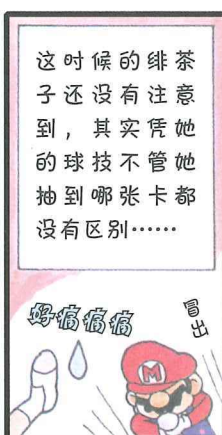 这时候的绯茶
子还没有注意
到，其实凭她
的球技不管她
抽到哪张卡都
没有区别……
好痛痛痛
冒出
M